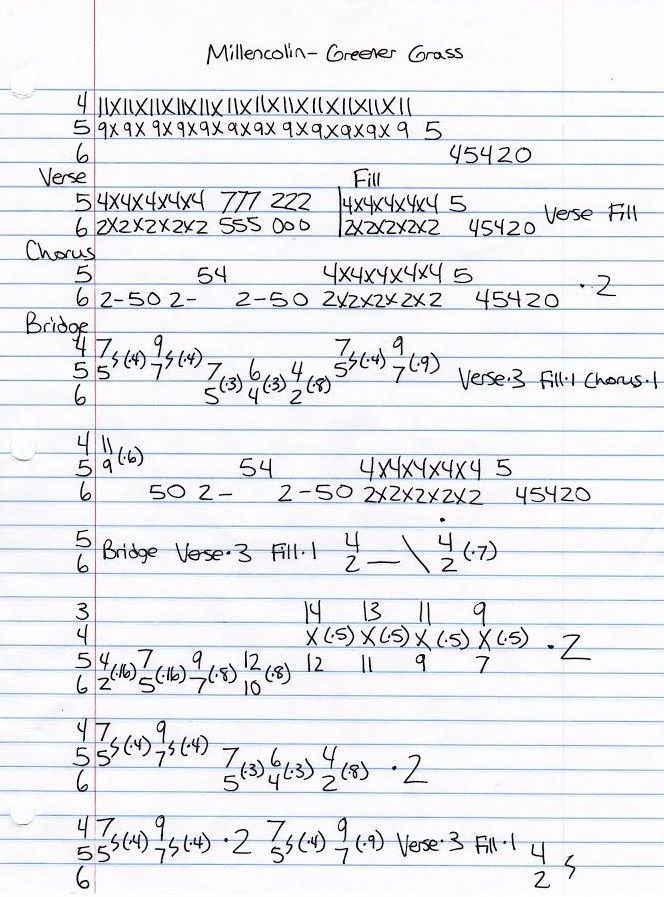 Millencolin- Greener Grass
4 11X11X11X11X11X11X11X11X11X11X11X11
5 9X9X9X9X9X9X9X9X9X9X9X9 5
6 45420
Verse Fill
5 4X4X4X4X4 777 222 4X4X4X4X4 5 Verse Fill
6 2X2X2X2X2 555 000 2X2X2X2X2 45420
Chorus
5 54 4X4X4X4X4 5 ·2
6 2-50 2- 2-50 2X2X2X2X2 45420
Bridge
4 7 9 7 9
5 5 s(·4) 7 s(·4) 7 6 4 5 s(·4) 7 (·9) Verse·3 Fill·1 Chorus·1
6 5(·3) 4(·3) 2(·8)
4 11
5 9 (·6) 54 4X4X4X4X4 5
6 50 2- 2-50 2X2X2X2X2 45420
5 Bridge Verse·3 Fill·1 4 4
6 2 _ \ 2 (·7)
3 14 13 11 9
4 X(·5) X(·5) X(·5) X(·5) ·2
5 4 7 9 12 12 11 9 7
6 2(·16) 5(·16) 7(·8) 10(·8)
4 7 9
5 5 s(·4) 7 s(·4) 7 6 4 ·2
6 5(·3) 4(·3) 2(·8)
4 7 9 7 9
5 5 s(·4) 7 s(·4) ·2 5 s(·4) 7 (·9) Verse·3 Fill·1 4
6 2 s